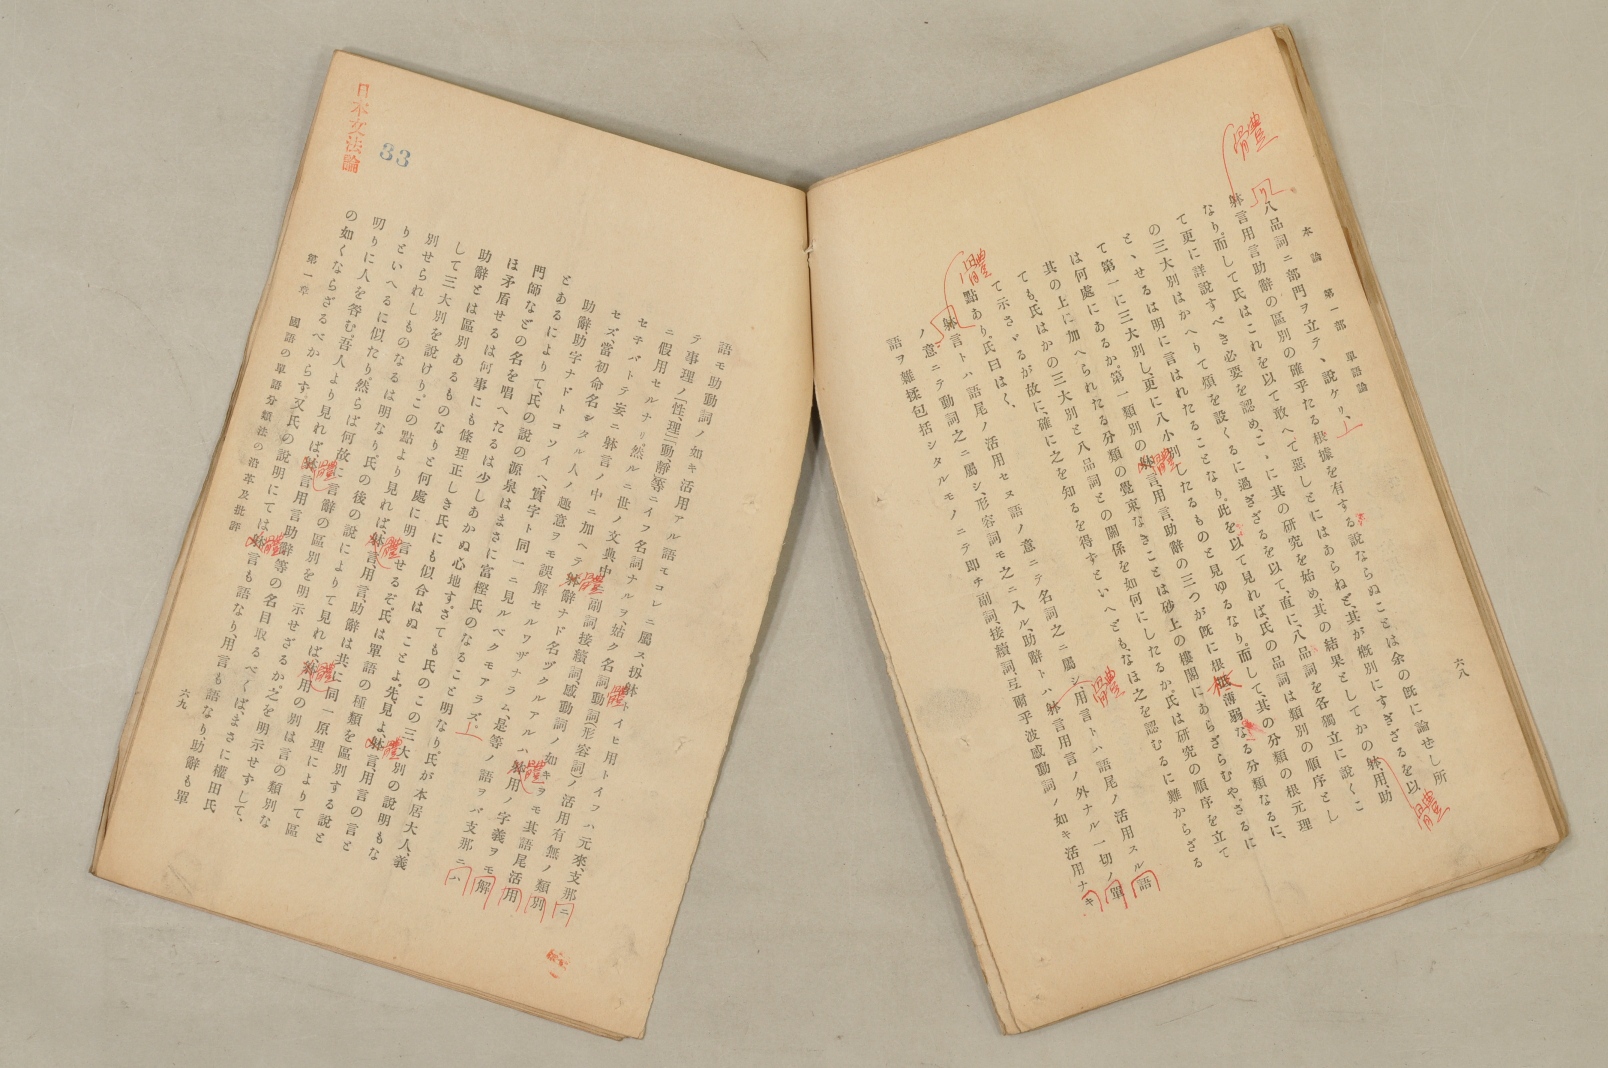 本論　第一部　單語論
六八
八品詞ニ部門ヲ立テ、說ケリ
體
躰言用言助辭の區別の確乎たる根據を有する說ならぬことは余の既に論せし所
なり。而して氏はこれを以て敢へて惡しとにはあらねど、其が槪別にすぎざるを以
體
て更に詳說すべき必要を認め、こゝに其の研究を始め、其の結果としてかの躰、用、助
の三大別はかへりて煩を設くるに過ぎざるを以て、直に八品詞を各獨立に說くこ
とゝせるは明に言はれたることなり。此を以て見れば、氏の品詞は類別の順序とし
て第一に三大別し、更に八小別したるものと見ゆるなり。而して、其の分類の根元理
は何處にあるか。第一類別の躰言、用言、助辭の三つが既に根柢薄弱なる分類なるに、
體
其の上に加へられたる分類の覺束なきことは砂上の樓閣にあらざらむや。さるに
ても、氏はかの三大別と八品詞との關係を如何にしたるか。氏は研究の順序を立て
て示さゞるが故に、確に之を知るを得ずといへども、なほ之を認むるに難からざる
體
點あり。氏曰はく、
躰言トハ語尾ノ活用セヌ語ノ意ニテ名詞之ニ屬シ、用言トハ語尾ノ活用スル語
體
ノ意ニテ動詞之ニ屬シ、形容詞モ之ニ入ル、助辭トハ躰言用言ノ外ナル一切ノ單
語ヲ雜揉包括シタルモノニテ卽チ副詞、接續詞、弖爾乎波、感動詞ノ如キ活用ナキ
日本文法論
33
語モ助動詞ノ如キ活用アル語モコレニ屬ス、扨躰トイヒ用トイフハ元來、支那ニ
體
テ事理ノ「性、理」「動、靜」等ニイフ名詞ナルヲ、姑ク名詞動詞(形容詞)ノ活用有無ノ類別
ニ假用セルナリ、然ルニ世ノ文典中ニ副詞接續詞、感動詞ノ如キヲモ其語尾活用
セネバトテ妄ニ躰言ノ中ニ加ヘテ躰辭ナド名ヅクルアルハ躰用ノ字義ヲモ解
體
體
セズ、當初命名シタル人ノ趣意ヲモ誤解セルワザナラム、是等ノ語ヲバ支那ニハ
助辭、助字ナドトコソイヘ、實字ト同一ニ見ルベクモアラズ、
とあるによりて、氏の說の源泉はまさに富樫氏のなること明なり。氏が本居大人、義
門師などの名を唱へたるは少しあかぬ心地す。さても氏のこの三大別の說明もな
ほ矛盾せるは何事にも條理正しき氏にも似合はぬことよ。先、見よ、躰言用言の言と
體
助辭とは區別あるものなりと何處に明言せるぞ。氏は單語の種類を區別する說と
して三大別を說けり。この點より見れば、躰言、用言、助辭は共に同一原理によりて區
體
別せられしものなるは明なり。氏の後の說によりて見れば、躰用の別は言の類別な
體
りといへるに似たり。然らば何故に言辭の區別を明示せざるか。之を明示せずして、
明りに人を咎む。吾人より見れば、躰言用言助辭等の名目取るべくは、まさに權田氏
體
の如くならざるべからず。又氏の說明にては躰言も語なり、用言も語なり、助辭も單
體
第一章　國語の單語分類法の沿革及批評
六九